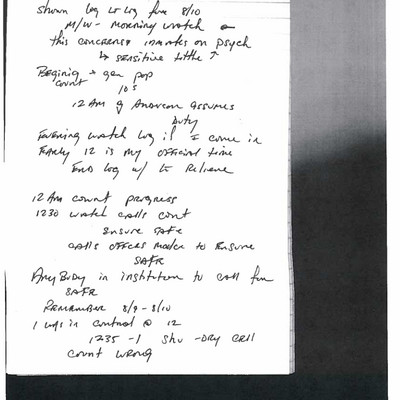 Shown Log Lt Log from 8/10
M/W - Morning watch
this concerns inmates on psych
↳ sensitive little ↑
Begining + gen pop
count 10s
12 AM Anderson assumes
Duty
Evening watch log if I come in
Early 12 is my official time
End log w/ Lt Relieve
12 Am count progress
1230 watch calls count
Ensure safe
calls offices make to Ensure
SAFR
Any Body in institution to call for
SAFR
Remember 8/9 - 8/10
I was in control @ 12
1235 - 1 Shu - Dry Cell
count wrong